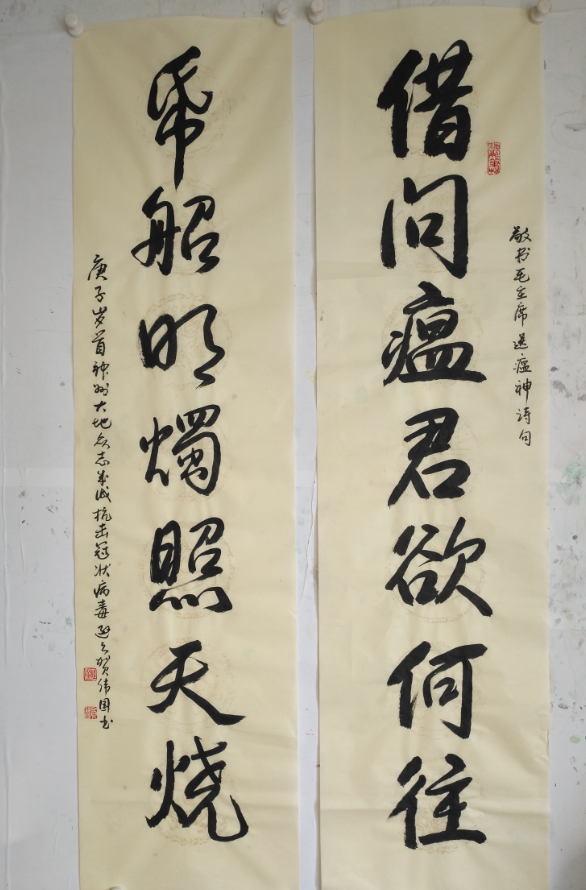 借问瘟君欲何往
敬书毛主席送瘟神诗句
纸船明烛照天烧
庚子岁首神州大地众志成城抗击冠状病毒 贺伟国书